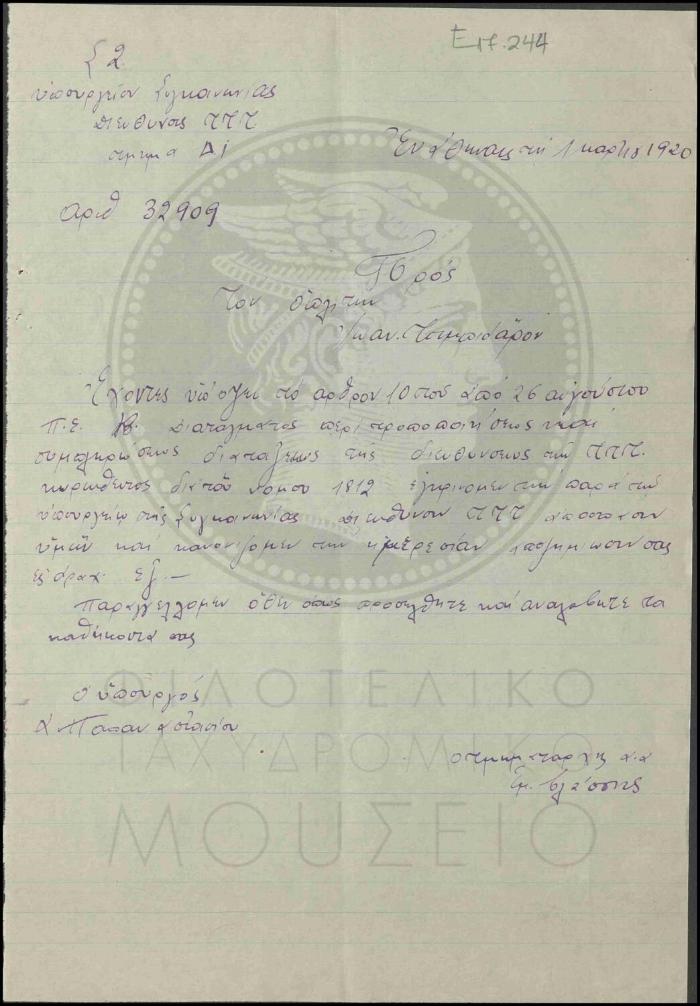 Επ. 244
Σ 2
υπουργείον Συγκοινωνίας
Διεύθυνσις ΤΤΤ
τμημα Δί
Εν Αθηναις τη 1 μαρτίου 1920
Αριθ 32909
Πρός
Τον οπλίτην
Ιωαν.
Εχοντες υπ όψει το αρθρον 10 του από 26 αυγούστου
Π.Ε. Διατάγματος περί τροποποιήσεως και
συμπληρώσεως διατάξεως της διευθύνσεως των Τ.Τ.Τ.
κυρωθέντος δια του νομου 1812 εγκρίνομεν την παρά τω
υπουργείω της Συγκοινωνίας Διευθυνσιν ΤΤΤ απόσπασιν
υμών και κανονίζομεν την ημερεσίαν αποζημίωσιν σας
εις δραχ εξ. —
Παραγγέλλομεν όθεν όπως προσέλθητε και αναλάβητε τα
καθήκοντα σας
ο υπουργός
Α Παπαναστασίου
ο τμηματαρχης α.α
Εμ.
ΦΙΛΟΤΕΛΙΚΟ
ΤΑΧΥΔΡΟΜΙΚΟ
ΜΟΥΣΕΙΟ